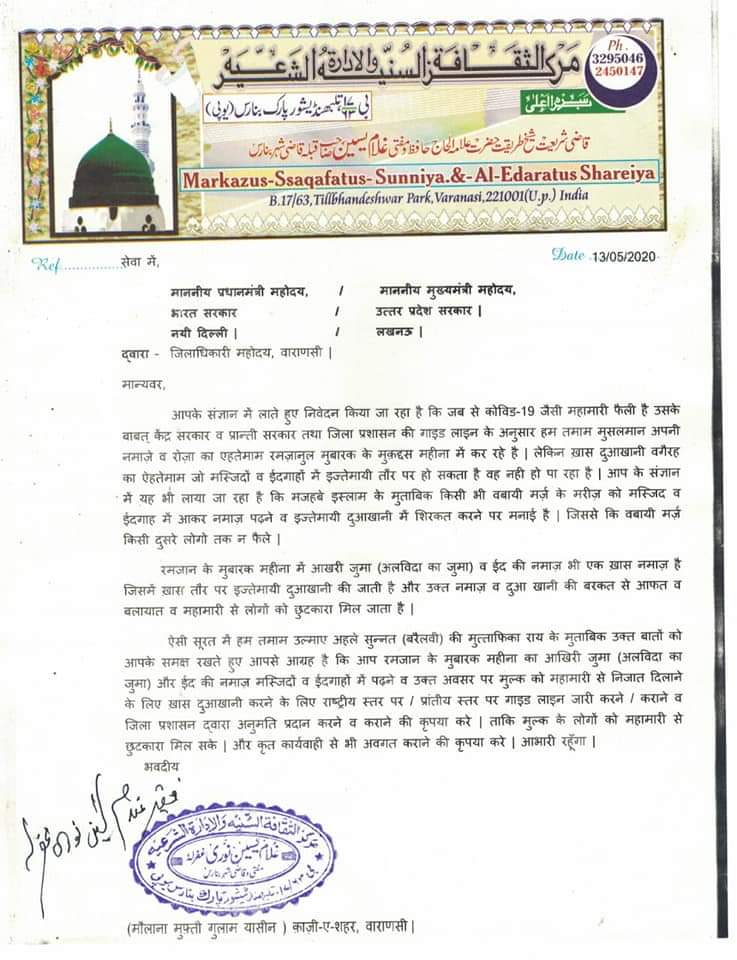 مرکز الثقافۃ السنیۃ والادارۃ الشرعیۃ
Ph.
3295046
2450147
بی ۱۷/۶۳ تلبھنڈیشور پارک بنارس (یوپی)
قاضی شریعت شیخ طریقت حضرت علامہ الحاج حافظ و مفتی غلام یٰسین صاحب قبلہ قاضی شہر بنارس
Markazus-Ssaqafatus- Sunniya.&-Al-Edaratus Shareiya
B.17/63,Tillbhandeshwar Park,Varanasi,221001(U.p.) India
Ref................सेवा में, Date .13/05/2020.
माननीय प्रधानमंत्री महोदय, / माननीय मुख्यमंत्री महोदय,
भारत सरकार / उत्तर प्रदेश सरकार |
नयी दिल्ली | / लखनऊ |
द्वारा - जिलाधिकारी महोदय, वाराणसी |
मान्यवर,
आपके संज्ञान में लाते हुए निवेदन किया जा रहा है कि जब से कोविड-19 जैसी महामारी फैली है उसके
बाबत् केंद्र सरकार व प्रान्ती सरकार तथा जिला प्रशासन की गाइड लाइन के अनुसार हम तमाम मुसलमान अपनी
नमाज़े व रोज़ा का एहतेमाम रमज़ानुल मुबारक के मुक़द्दस महीना में कर रहे है | लेकिन ख़ास दुआखानी वगैरह
का ऐहतेमाम जो मस्जिदों व ईदगाहों में इज्तेमायी तौर पर हो सकता है वह नही हो पा रहा है | आप के संज्ञान
में यह भी लाया जा रहा है कि मजहबे इस्लाम के मुताबिक किसी भी वबायी मर्ज़ के मरीज़ को मस्जिद व
ईदगाह में आकर नमाज़ पढ़ने व इज्तेमायी दुआखानी में शिरकत करने पर मनाई है | जिससे कि वबायी मर्ज़
किसी दुसरे लोगो तक न फैले |
रमजान के मुबारक महीना में आखरी जुमा (अलविदा का जुमा) व ईद की नमाज़ भी एक ख़ास नमाज़ है
जिसमें ख़ास तौर पर इज्तेमायी दुआखानी की जाती है और उक्त नमाज़ व दुआ खानी की बरकत से आफत व
बलायात व महामारी से लोगों को छुटकारा मिल जाता है |
ऐसी सूरत में हम तमाम उल्माए अहले सुन्नत (बरैलवी) की मुत्ताफिका राय के मुताबिक उक्त बातों को
आपके समक्ष रखते हुए आपसे आग्रह है कि आप रमजान के मुबारक महीना का आखिरी जुमा (अलविदा का
जुमा) और ईद की नमाज़ मस्जिदों व ईदगाहों में पढ़ने व उक्त अवसर पर मुल्क को महामारी से निजात दिलाने
के लिए ख़ास दुआखानी करने के लिए राष्ट्रीय स्तर पर / प्रांतीय स्तर पर गाइड लाइन जारी करने / कराने व
जिला प्रशासन द्वारा अनुमति प्रदान करने व कराने की कृपया करे | ताकि मुल्क के लोगों को महामारी से
छुटकारा मिल सके | और कृत कार्यवाही से भी अवगत कराने की कृपया करे | आभारी रहूँगा |
भवदीय
مرکز الثقافۃ السنیۃ والادارۃ الشرعیۃ
غلام یٰسین نوری غفرلہ
مفتی و قاضی شہر بنارس
(मौलाना मुफ़्ती गुलाम यासीन ) क़ाज़ी-ए-शहर, वाराणसी |